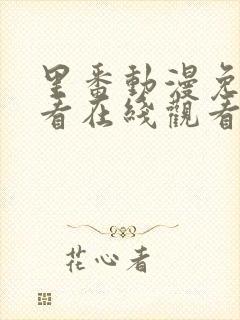 里番動漫免
看在线觀看
花心者